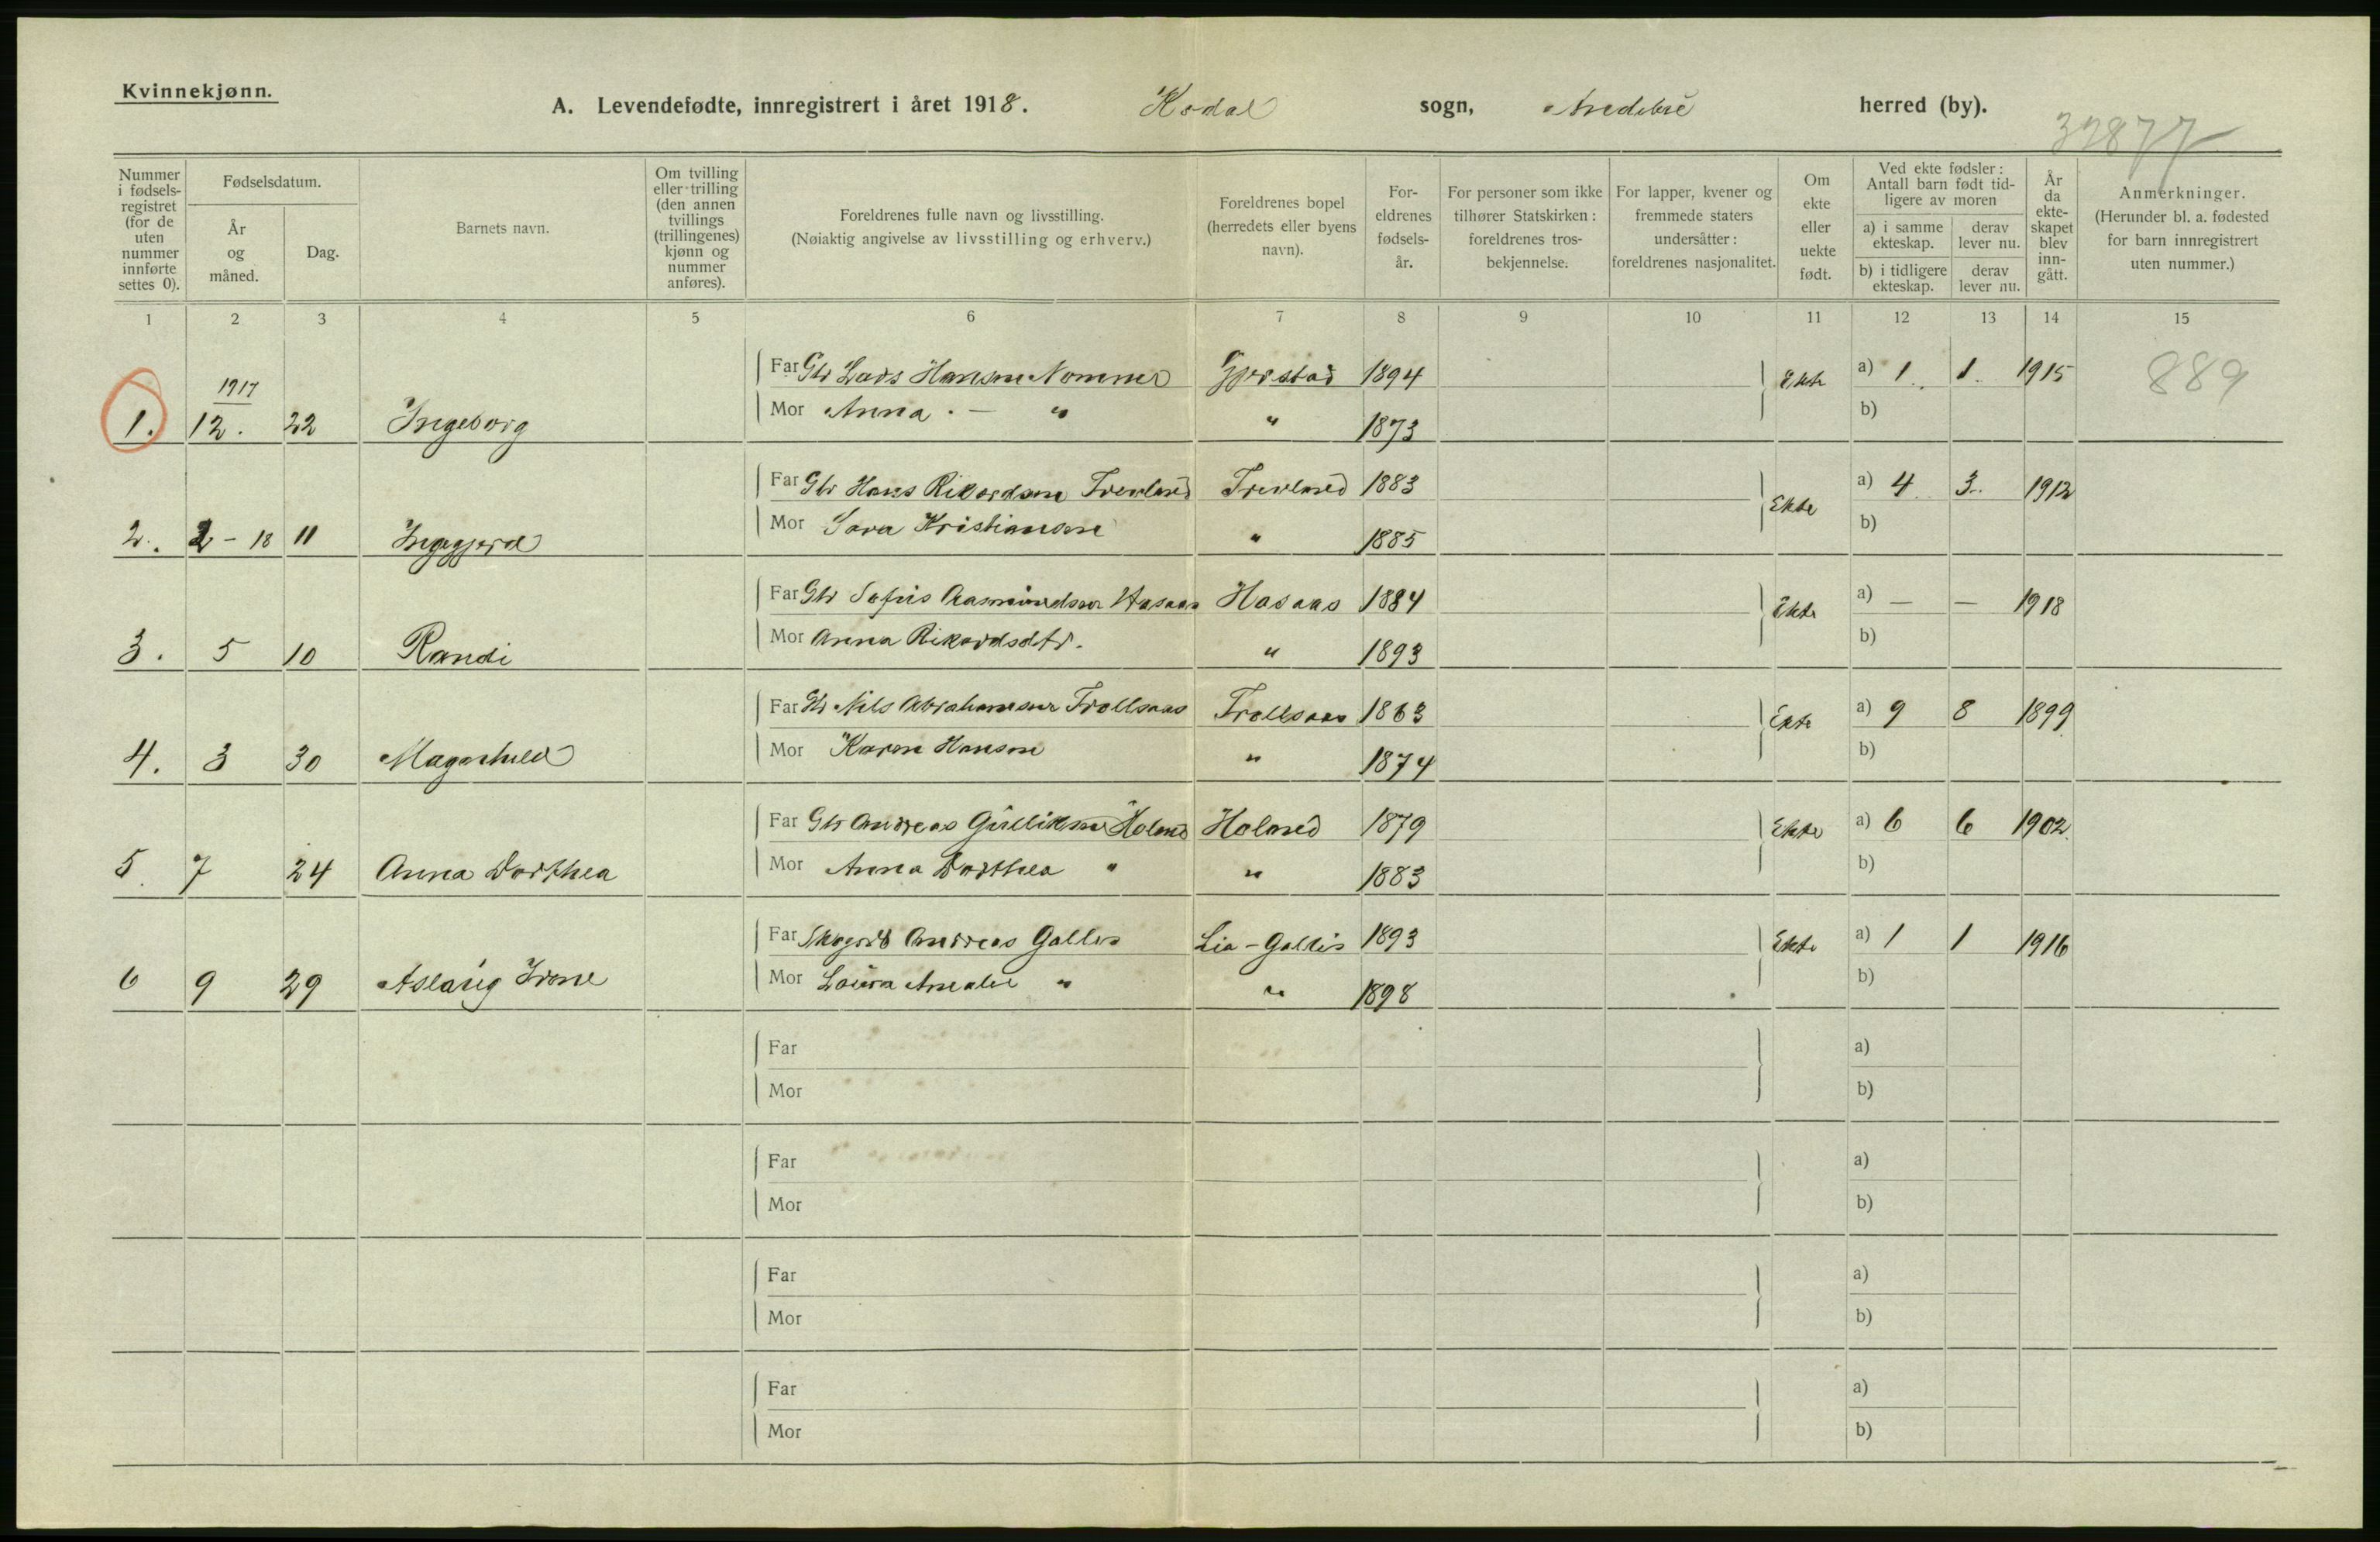 Kvinnekjønn.
A. Levendefødte, innregistrert i året 1918. Kodal sogn, Andebu herred (by).
32877
Nummer i fødsels-registret (for de uten nummer innførte settes 0).
Fødselsdatum.
År og måned.
Dag.
Barnets navn.
Om tvilling eller trilling (den annen tvillings (trillingenes) kjønn og nummer anføres).
Foreldrenes fulle navn og livsstilling.
(Nøiaktig angivelse av livsstilling og erhverv.)
Foreldrenes bopel (herredets eller byens navn).
For-eldrenes fødsels-år.
For personer som ikke tilhører Statskirken: foreldrenes tros-bekjennelse.
For lapper, kvener og fremmede staters undersåtter: foreldrenes nasjonalitet.
Om ekte eller uekte født.
Ved ekte fødsler: Antall barn født tid-ligere av moren
a) i samme ekteskap.
derav lever nu.
b) i tidligere ekteskap.
derav lever nu.
År da ekte-skapet blev inn-gått.
Anmerkninger.
(Herunder bl. a. fødested for barn innregistrert uten nummer.)
1 2 3 4 5 6 7 8 9 10 11 12 13 14 15
Far Gbr Lars Hansen Nommer Gjerstad 1894 Ekte a) 1 1 1915 889
1. 1917 12. 22 Ingeborg Mor Anna - " " 1873 b)
Far Gbr Hans Rikardsen Trevland Trevland 1883 Ekte a) 4 3 1912
2. 2-18 11 Ingegjerd Mor Sara Kristiansen " 1885 b)
Far Gbr Sofus Aasmundsen Hasaas Hasaas 1884 Ekte a) — — 1918
3. 5 10 Randi Mor Anna Rikardsdtr. " 1893 b)
Far Gbr Nils Abrahamsen Trollsaas Trollsaas 1863 Ekte a) 9 8 1899
4. 3 30 Magnhild Mor Karen Hansen " 1874 b)
Far Gbr Andreas Gulliksen Holand Holmed 1879 Ekte a) 6 6 1902
5. 7 24 Anna Dorthea Mor Anna Dorthea " " 1883 b)
Far Andreas Gallis Lia-Gallis 1893 Ekte a) 1 1 1916
6 9 29 Aslaug Irene Mor Laura Amalie " " 1898 b)
Far a)
Mor b)
Far a)
Mor b)
Far a)
Mor b)
Far a)
Mor b)